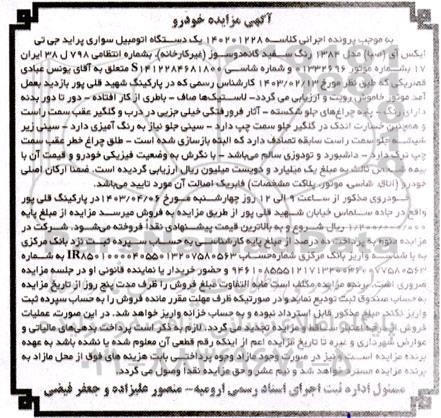 آگهی مزایده خودرو
به موجب پرونده اجرائی کلاسه ۱۴۰۲۰۱۲۲۸ یک دستگاه اتومبیل سواری پراید جی تی
ایکس آی (صبا) مدل ۱۳۸۴ رنگ سفید گاهدوسوز (غیرکارخانه)، بشماره انتظامی ۷۹۸ ل ۳۸ ایران
۱۷ بشماره موتور ۰۱۳۳۲۶۹۶ و شماره شاسی S۱۴۱۲۲۸۴۶۸۱۸۰۵ متعلق به آقای یونس عبادی
قصریکی که طی نظر مورخ ۱۴۰۳/۰۲/۱۳ کارشناس رسمی که در پارکینگ شهید قلی پور بازدید بعمل
آمد موتور خاموش رویت و ارزیابی می گردد- لاستیک‌ها صاف - باطری از کار افتاده - دور تا دور بدنه
دارای رنگ - پره چراغ‌های جلو شکسته - آثار فرورفتگی خیلی جزیی در درب و گلگیر عقب سمت راست
و همچنین خسارت اندک در گلگیر جلو سمت چپ دارد - سینی جلو نیاز به رنگ آمیزی دارد - سینی زیر
شیشه جلو سمت راست سابقه تصادف دارد که البته بازسازی شده است - طلق چراغ خطر عقب سمت
چپ ندارد - داشبورد و تودوزی سالم می‌باشد - با نگرش به وضعیت فیزیکی خودرو و قیمت آن با
بیمه شخص ثالث به مبلغ یک میلیارد و دویست میلیون ریال ارزیابی گردیده است. ضمنا ارکان اصلی
خودرو (اتاق، شاسی، موتور، پلاک مشخصات) فابریک اصالت آن مورد تایید می‌باشد.
خودروی مذکور از ساعت ۹ الی ۱۲ روز چهارشنبه مورخ ۱۴۰۳/۰۴/۰۶ در پارکینگ قلی پور
واقع در جاده سلماس خیابان شهید قلی پور از طریق مزایده به فروش میرسد مزایده از مبلغ پایه
ریال شروع و به بالاترین قیمت پیشنهادی نقدا فروخته می‌شود. شرکت در
مزایده منوط به پرداخت ده درصد از مبلغ پایه کارشناسی به حساب سپرده ثبت نزد بانک مرکزی
به شماره
و حضور خریدار یا نماینده قانونی او در جلسه مزایده
ضروری است. برنده مزایده مکلف است مابه التفاوت مبلغ فروش را ظرف مدت پنج روز از تاریخ مزایده
به حساب صندوق ثبت تودیع نماید و در صورتیکه ظرف مهلت مقرر مانده فروش را به حساب سپرده ثبت
واریز نکند مبلغ مذکور قابل استرداد نبوده و به حساب خزانه واریز خواهد شد. در این صورت عملیات
فروش از درجه اعتبار ساقط و مزایده تجدید می گردد. لازم به ذکر است پرداخت بدهی‌های مالیاتی و
عوارض شهرداری و غیره تا تاریخ مزایده اعم از اینکه رقم قطعی آن معلوم شده یا نشده باشد به عهده
برنده مزایده است. نیز در صورت وجود مازاد وجوه پرداختی بابت هزینه های فوق از محل مازاد به
برنده مزایده مسترد خواهد شد و نیم عشر و حق مزایده نقدا وصول می گردد.
مسئول اداره ثبت اجرای اسناد رسمی ارومیه- منصور علیزاده و جعفر فیضی